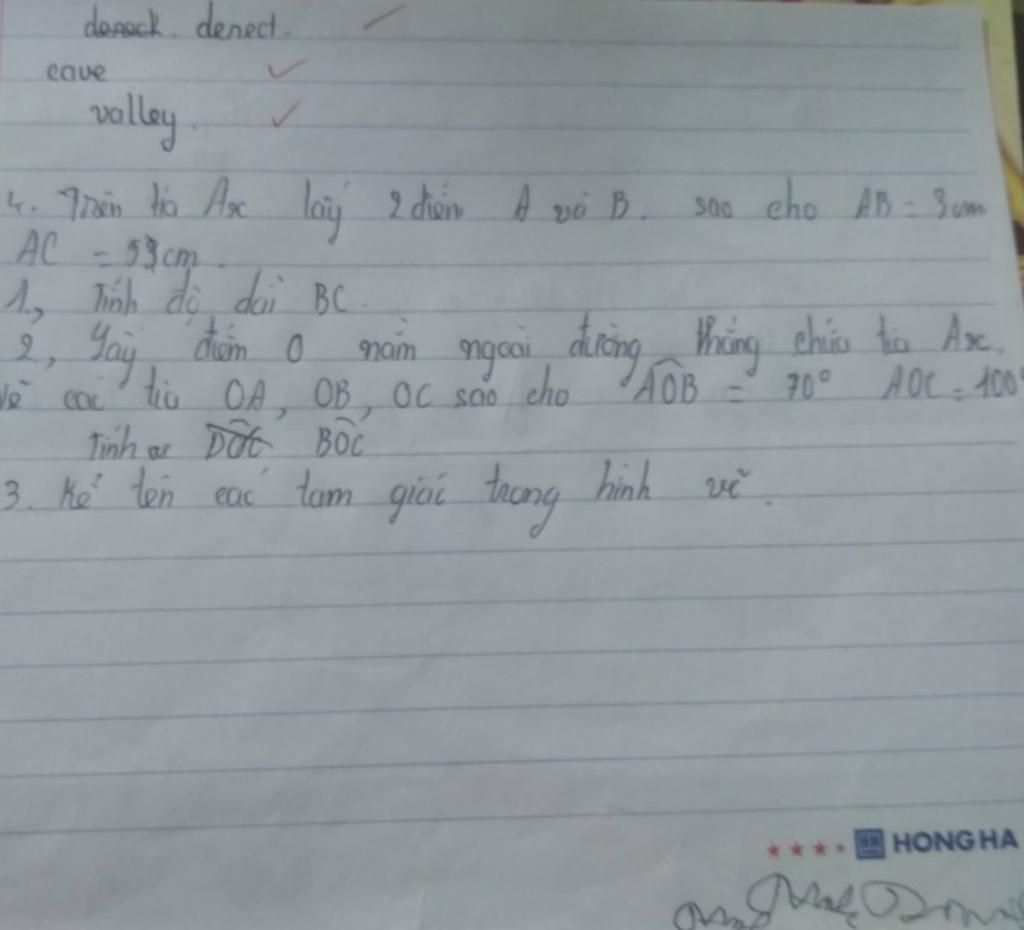 denect.
cave
valley.
4. Trên tia Ax lấy 2 điểm A và B. sao cho AB = 3cm
AC = 5cm.
1., Tính độ dài BC.
2, Lấy điểm O nằm ngoài đường thẳng chứa tia Ax.
Vẽ các tia OA, OB, OC sao cho AOB = 70° AOC = 100°
Tính BOC
3. Kể tên các tam giác trong hình vẽ.
HONG HA